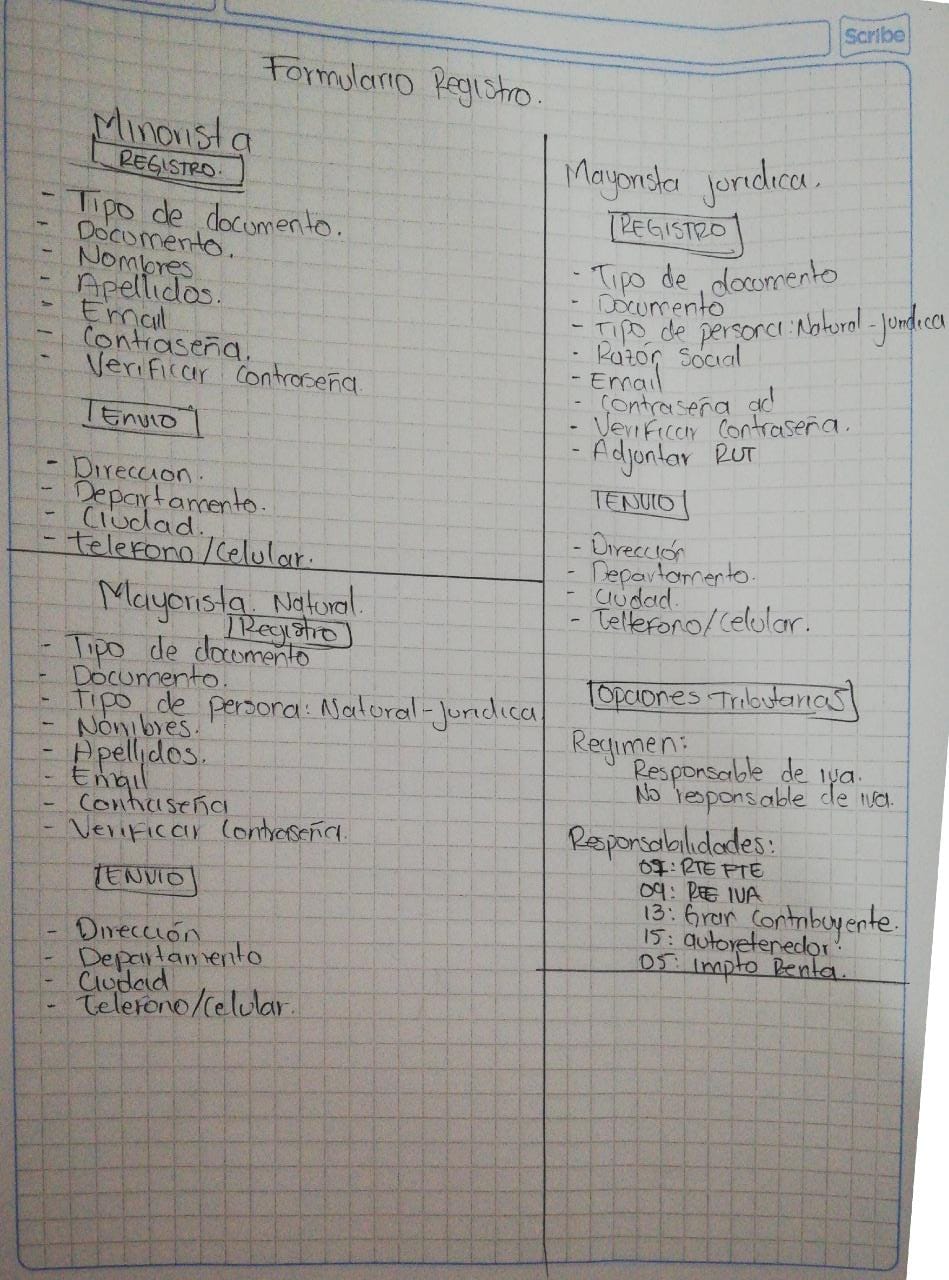 Scribe
Formulario Registro.
Minorista
REGISTRO.
- Tipo de documento.
- Documento.
- Nombres
- Apellidos.
- Email
- Contraseña.
- Verificar contraseña.
Envio
- Direccion.
- Departamento.
- Ciudad.
- Telefono/Celular.
Mayorista Natural.
Registro
- Tipo de documento
- Documento.
- Tipo de persona: Natural-juridica
- Nombres.
- Apellidos.
- Email
- Contraseña
- Verificar contraseña.
ENVIO
- Dirección
- Departamento
- Ciudad
- Telefono/Celular.
Mayorista juridica.
REGISTRO
- Tipo de documento
- Documento
- Tipo de persona: Natural-juridica
- Razón Social
- Email
- Contraseña ad
- Verificar contraseña.
- Adjuntar RUT
ENVIO
- Dirección
- Departamento.
- Ciudad.
- Tellefono/Celular.
Opciones Tributarias
Regimen:
Responsable de iva.
No responsable de iva.
Responsabilidades:
07: RTE FTE
09: IVA
13: Gran contribuyente.
15: autoretenedor.
05: Impto Renta.